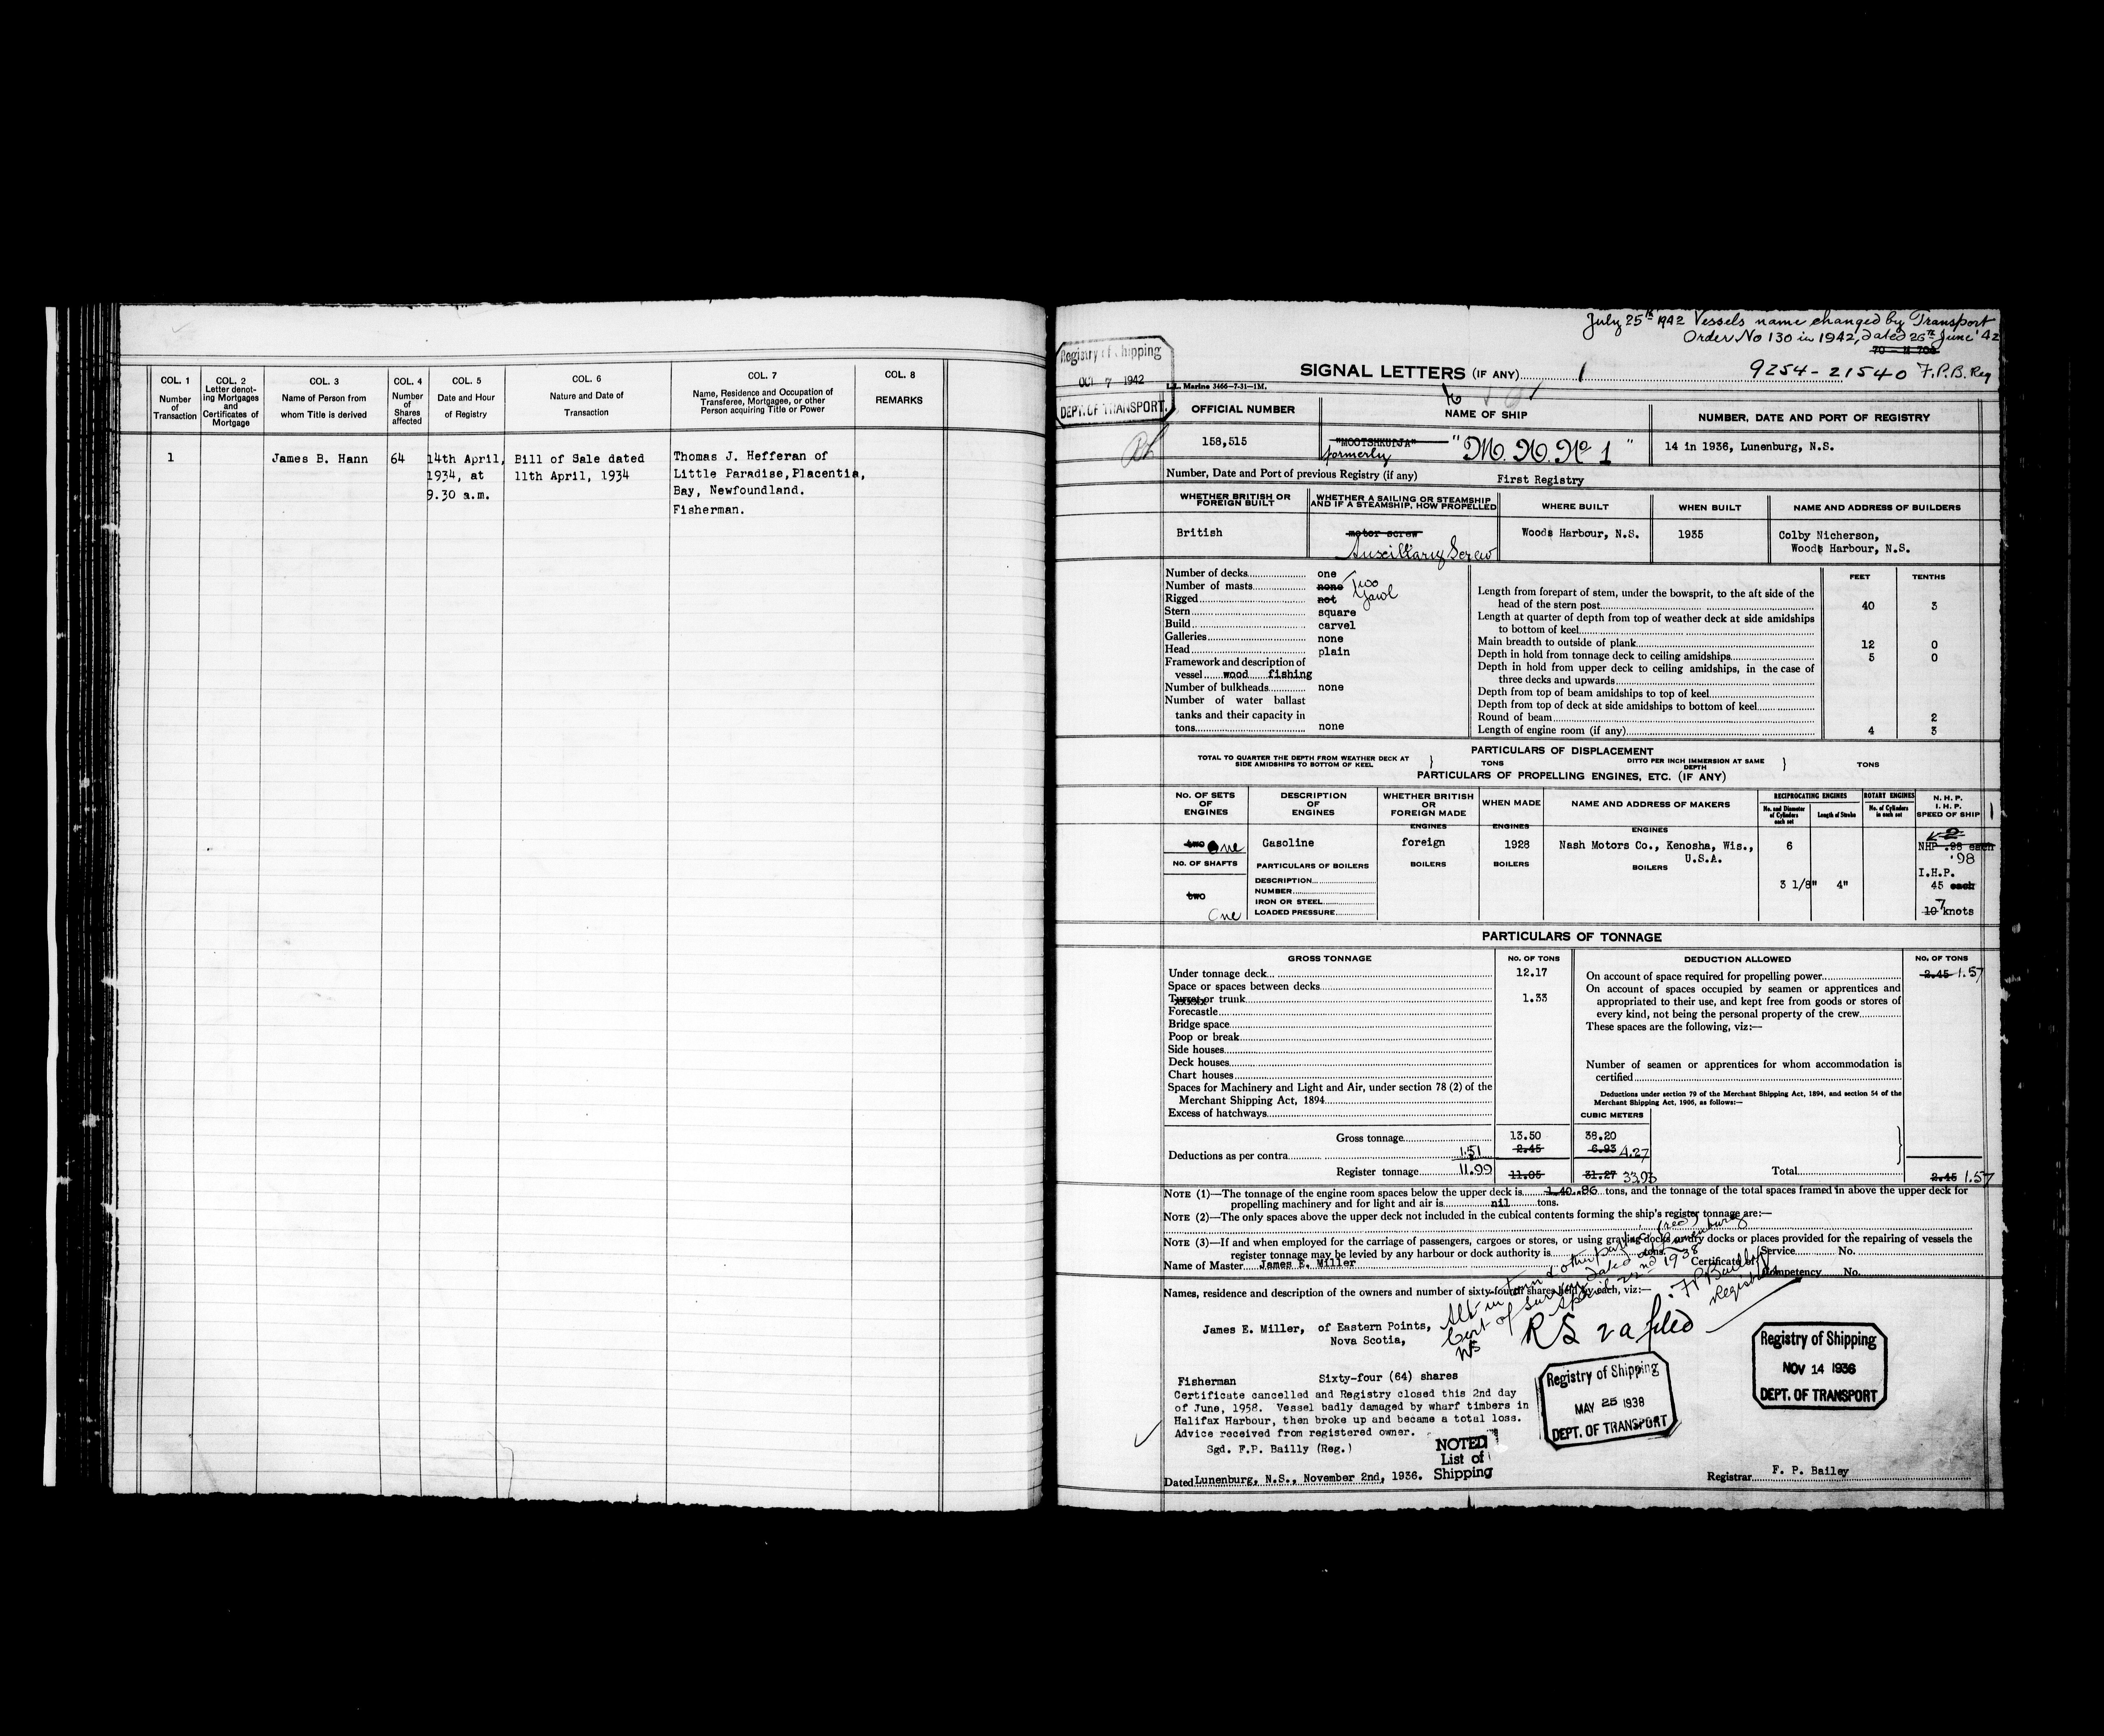 COL. 1 Number of Transaction
COL. 2 Letter denoting Mortgages and Certificates of Mortgage
COL. 3 Name of Person from whom Title is derived
COL. 4 Number of Shares affected
COL. 5 Date and Hour of Registry
COL. 6 Nature and Date of Transaction
COL. 7 Name, Residence and Occupation of Transferee, Mortgagee, or other Person acquiring Title or Power
COL. 8 REMARKS
1 James B. Hann 64 14th April, Bill of Sale dated Thomas J. Hefferan of
1934, at 11th April, 1934 Little Paradise, Placentia,
9.30 a.m. Bay, Newfoundland.
Fisherman.
July 25th 1942 Vessels name changed by Transport
Order No 130 in 1942, dated 25th June '42
9254-21540 F.P.B. Reg
Registry of Shipping
OCT 7 1942
DEPT. OF TRANSPORT
SIGNAL LETTERS (IF ANY) 1
L.L. Marine 3466-7-31-1M.
OFFICIAL NUMBER NAME OF SHIP NUMBER, DATE AND PORT OF REGISTRY
158,515 "MOOTSHKUPJA" "M.N. No 1" 14 in 1936, Lunenburg, N.S.
formerly
Number, Date and Port of previous Registry (if any) First Registry
WHETHER BRITISH OR FOREIGN BUILT WHETHER A SAILING OR STEAMSHIP AND IF A STEAMSHIP, HOW PROPELLED WHERE BUILT WHEN BUILT NAME AND ADDRESS OF BUILDERS
British motor screw Woods Harbour, N.S. 1935 Colby Nicherson,
Auxciliary Screw Woods Harbour, N.S.
Number of decks one
Number of masts none two
Rigged not Yawl
Stern square
Build carvel
Galleries none
Head plain
Framework and description of
vessel wood fishing
Number of bulkheads none
Number of water ballast
tanks and their capacity in
tons none
FEET TENTHS
Length from forepart of stem, under the bowsprit, to the aft side of the
head of the stern post 40 3
Length at quarter of depth from top of weather deck at side amidships
to bottom of keel
Main breadth to outside of plank 12 0
Depth in hold from tonnage deck to ceiling amidships 5 0
Depth in hold from upper deck to ceiling amidships, in the case of
three decks and upwards
Depth from top of beam amidships to top of keel
Depth from top of deck at side amidships to bottom of keel
Round of beam 2
Length of engine room (if any) 4 3
PARTICULARS OF DISPLACEMENT
TOTAL TO QUARTER THE DEPTH FROM WEATHER DECK AT SIDE AMIDSHIPS TO BOTTOM OF KEEL } TONS DITTO PER INCH IMMERSION AT SAME DEPTH } TONS
PARTICULARS OF PROPELLING ENGINES, ETC. (IF ANY)
No. OF SETS OF ENGINES DESCRIPTION OF ENGINES WHETHER BRITISH OR FOREIGN MADE WHEN MADE NAME AND ADDRESS OF MAKERS RECIPROCATING ENGINES No. and Diameter of Cylinders each set Length of Stroke ROTARY ENGINES No. of Cylinders in each set N. H. P. I. H. P. SPEED OF SHIP
ENGINES ENGINES ENGINES
two One Gasoline foreign 1928 Nash Motors Co., Kenosha, Wis., U.S.A. 6 NHP .98 each
.98
NO. OF SHAFTS PARTICULARS OF BOILERS BOILERS BOILERS BOILERS
DESCRIPTION I.H.P.
two NUMBER 3 1/8" 4" 45 each
IRON OR STEEL
One LOADED PRESSURE 10 7 knots
PARTICULARS OF TONNAGE
GROSS TONNAGE NO. OF TONS DEDUCTION ALLOWED NO. OF TONS
Under tonnage deck 12.17
Space or spaces between decks
Turret or trunk 1.33
Forecastle
Bridge space
Poop or break
Side houses
Deck houses
Chart houses
Spaces for Machinery and Light and Air, under section 78 (2) of the
Merchant Shipping Act, 1894
Excess of hatchways
Gross tonnage 13.50 38.20
Deductions as per contra 1.51 2.45 6.93 4.27
Register tonnage 11.99 11.05 31.27 33.93
On account of space required for propelling power 2.45 1.57
On account of spaces occupied by seamen or apprentices and
appropriated to their use, and kept free from goods or stores of
every kind, not being the personal property of the crew
These spaces are the following, viz:—
Number of seamen or apprentices for whom accommodation is
certified
Deductions under section 79 of the Merchant Shipping Act, 1894, and section 54 of the
Merchant Shipping Act, 1906, as follows:—
CUBIC METERS
Total 2.45 1.57
NOTE (1)—The tonnage of the engine room spaces below the upper deck is 1.40 .86 tons, and the tonnage of the total spaces framed in above the upper deck for
propelling machinery and for light and air is nil tons.
NOTE (2)—The only spaces above the upper deck not included in the cubical contents forming the ship's register tonnage are:—
NOTE (3)—If and when employed for the carriage of passengers, cargoes or stores, or using graving docks or dry docks or places provided for the repairing of vessels the
register tonnage may be levied by any harbour or dock authority is tons.
Name of Master James E. Miller Certificate of Service No.
Competency No.
Names, residence and description of the owners and number of sixty-fourth shares held by each, viz:—
Alt in tonn & other part
Cert of Survey dated at Lunenburg
NS April 22nd 1938
F P Bailly
Registrar
James E. Miller, of Eastern Points,
Nova Scotia,
RS 2a filed
Fisherman Sixty-four (64) shares
Certificate cancelled and Registry closed this 2nd day
of June, 1958. Vessel badly damaged by wharf timbers in
Halifax Harbour, then broke up and became a total loss.
Advice received from registered owner.
Sgd. F.P. Bailly (Reg.)
NOTED
List of
Shipping
Registry of Shipping
MAY 25 1938
DEPT. OF TRANSPORT
Registry of Shipping
NOV 14 1936
DEPT. OF TRANSPORT
Dated Lunenburg, N.S., November 2nd, 1936.
Registrar F. P. Bailey